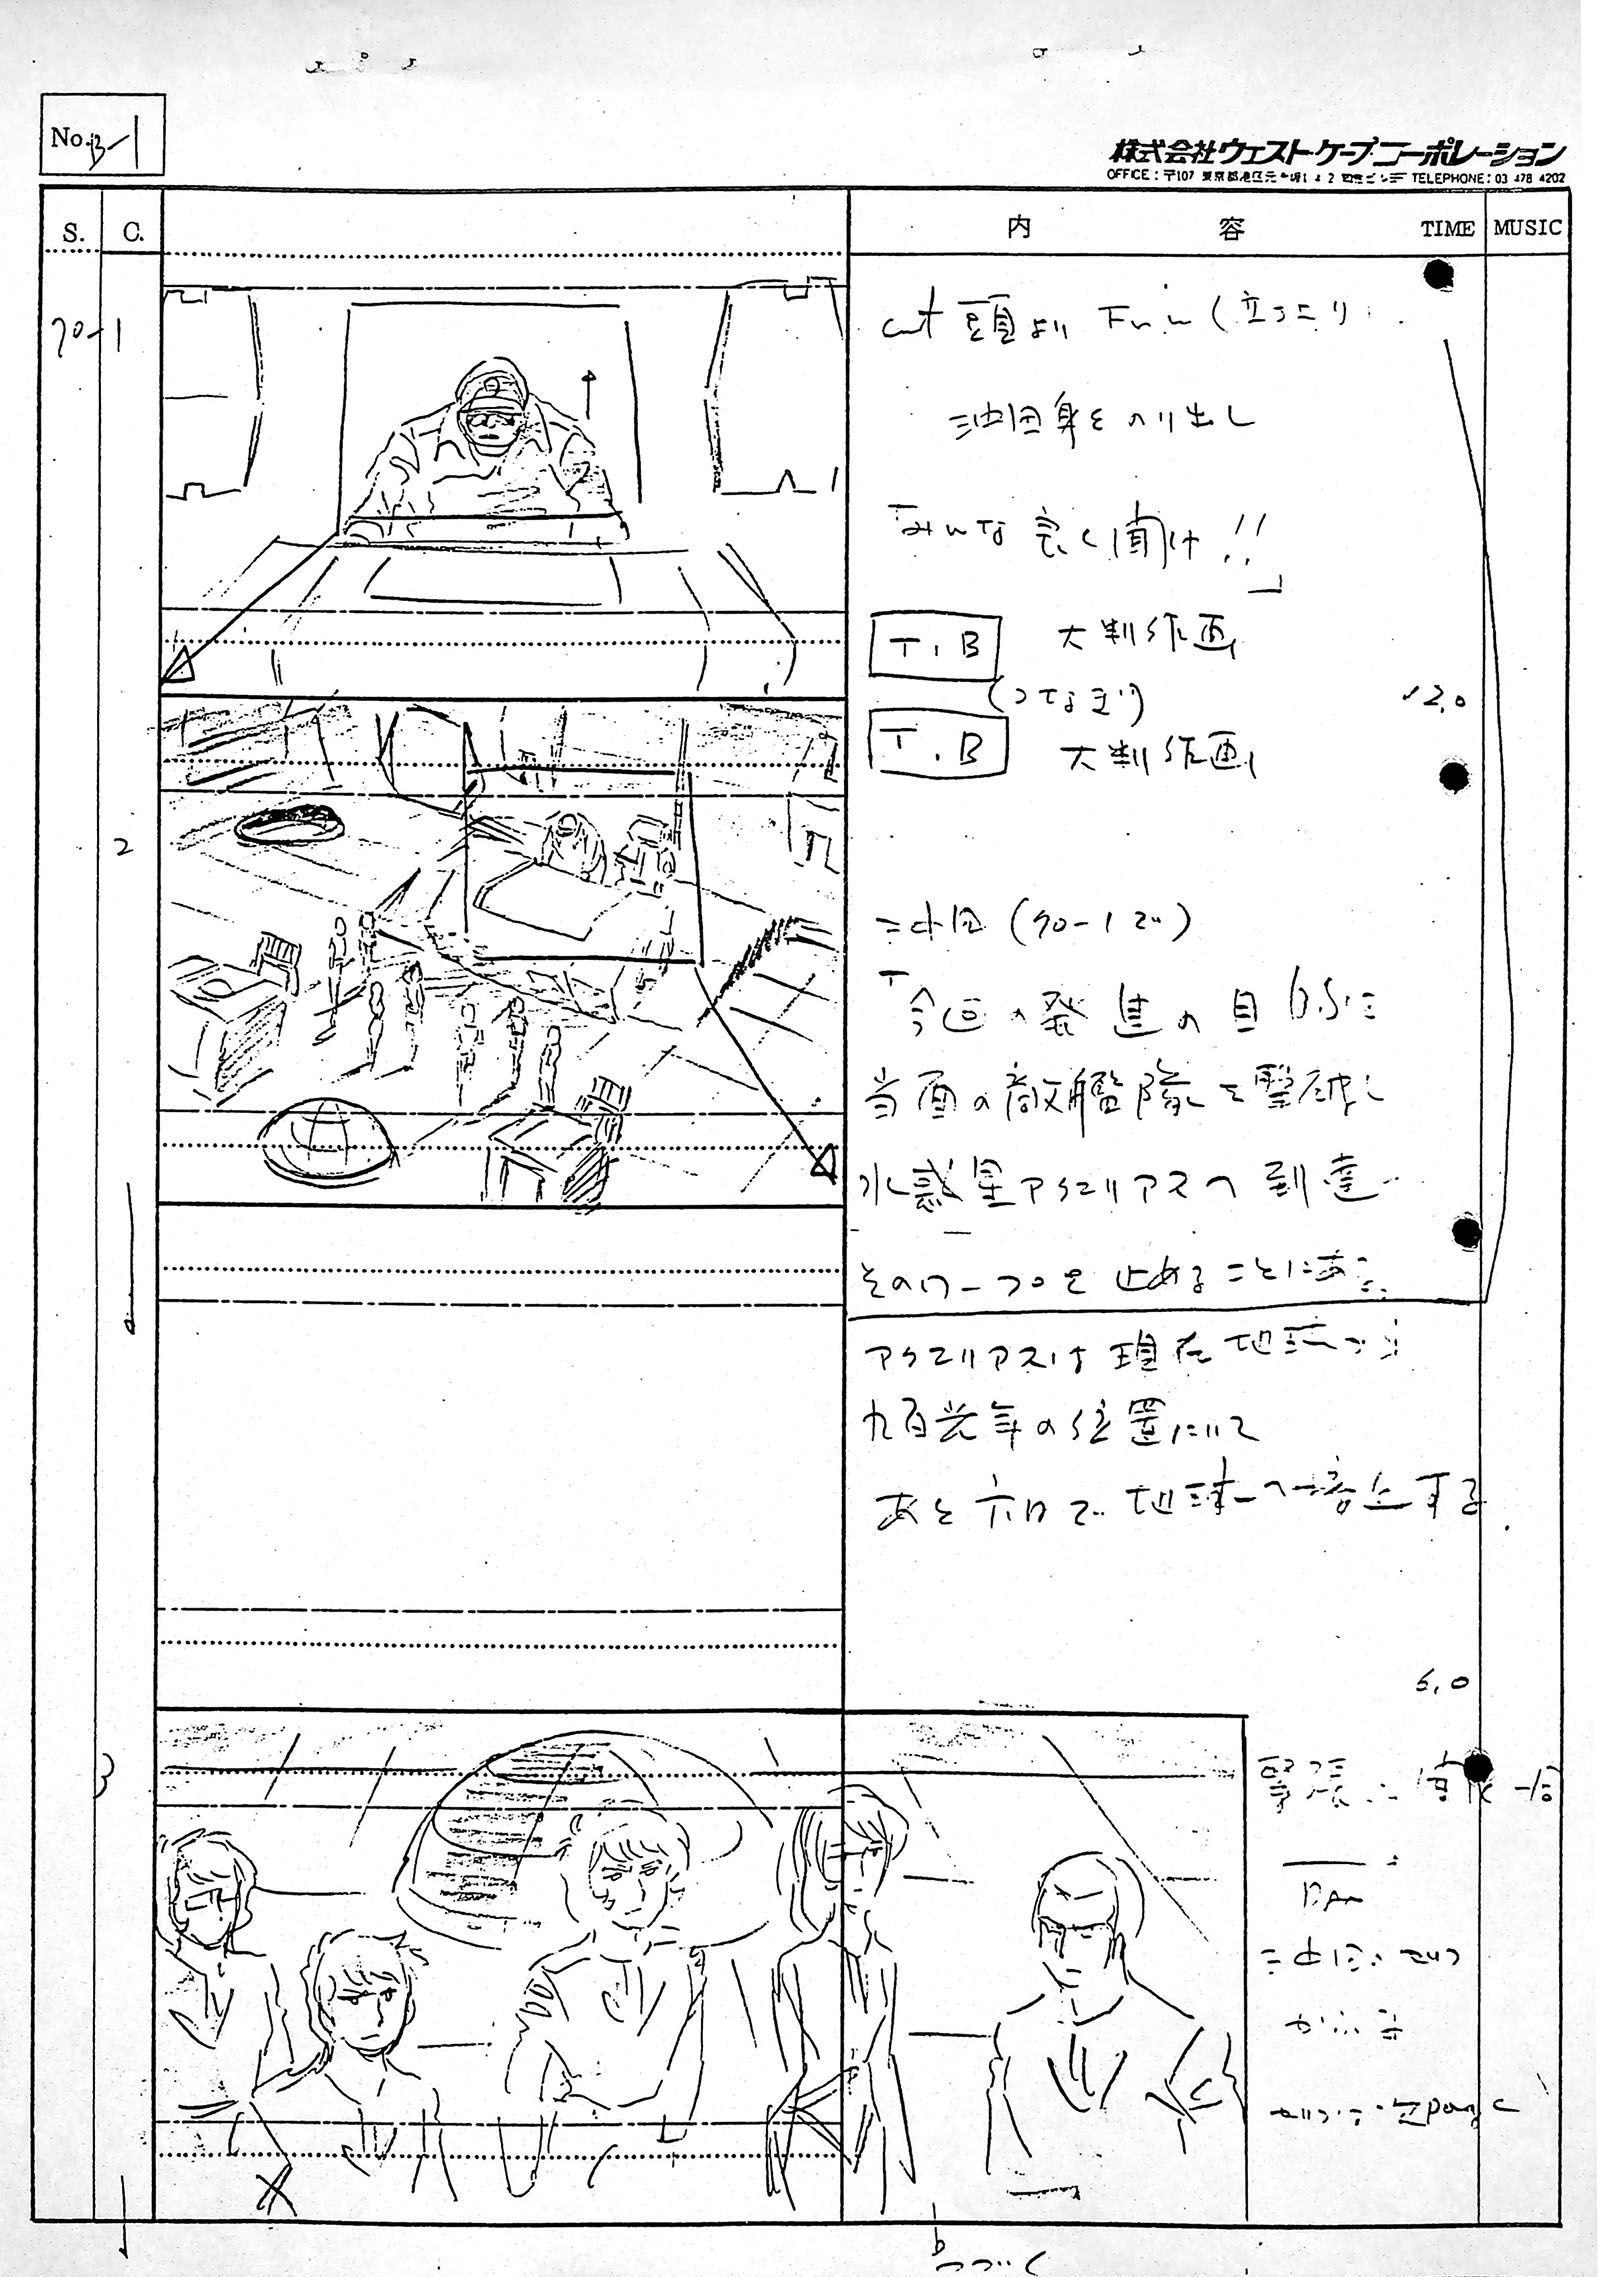 No. B-1
株式会社ウエスト・ケープ・コーポレーション
OFFICE:〒107 東京都港区元赤坂1 4 2 TELEPHONE:03 478 4202
S. C. 内 容 TIME MUSIC
70-1
cut 頭より
身をのり出し
「みんな良く聞け!!」
T.B 大判作画
(つなぎ) 12.0
T.B 大判作画
2
(70-1で)
「今回の発進の目的は
当面の敵艦隊を撃破し
水惑星アクエリアスへ到達
そのワープを止めることにある。
アクエリアスは現在地球から
九百光年の位置にいて
あと六日で地球へ接近する
5.0
3
緊張
PAN
つづく